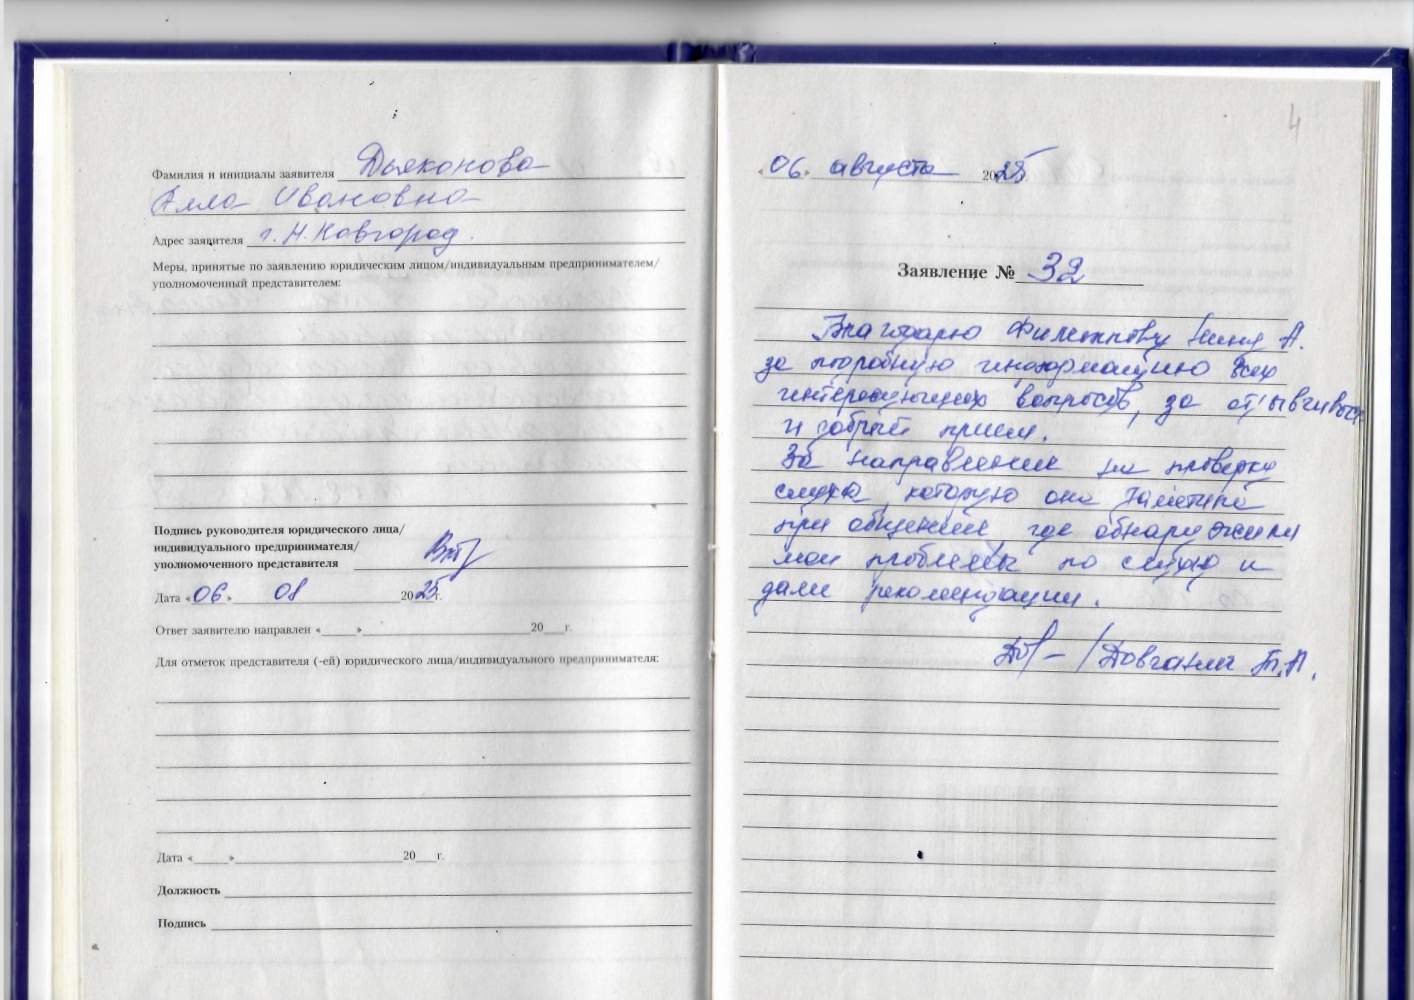 Фамилия и инициалы заявителя Дьяконова
Алла Ивановна
Адрес заявителя г. Н. Новгород.
Меры, принятые по заявлению юридическим лицом/индивидуальным предпринимателем/
уполномоченный представителем:
Подпись руководителя юридического лица/
индивидуального предпринимателя/
уполномоченного представителя
Дата «06» 08 2025г.
Ответ заявителю направлен «     »                    20    г.
Для отметок представителя (-ей) юридического лица/индивидуального предпринимателя:
Дата «     »                    20    г.
Должность
Подпись
4
«06» августа 2025г.
Заявление № 32
Благодарю Филиппову Нину А.
за подробную информацию всех
интересующих вопросов, за отзывчивость
и добрый прием.
За направление на проверку
слуха, которую она заметила
при общении, где обнаружили
мои проблемы по слуху и
дали рекомендации.
/Довгалик Т.А.